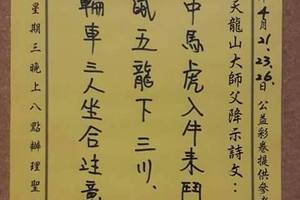 年4月21.23.26.日公益彩卷提供參考
天龍山大師父降示詩文：
中馬虎入牛未鬥
鼠五龍下三川、
輪車三人坐合註意
星期三晚上八點辦理聖